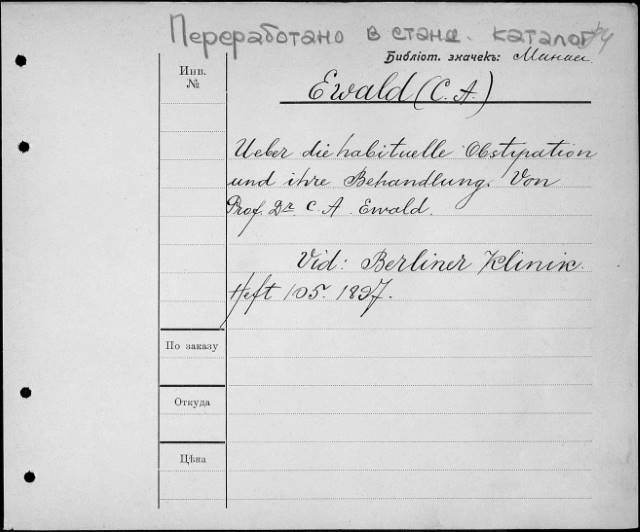 Переработано в станд. каталог
Библіот. значекъ:
Инв.
№
Ewald (C. A.)
Ueber die habituelle Obstipation
und ihre Behandlung. Von
Prof. Dr. C. A. Ewald.
Vid: Berliner Klinik.
Heft 105. 1897.
По заказу
Откуда
Цѣна